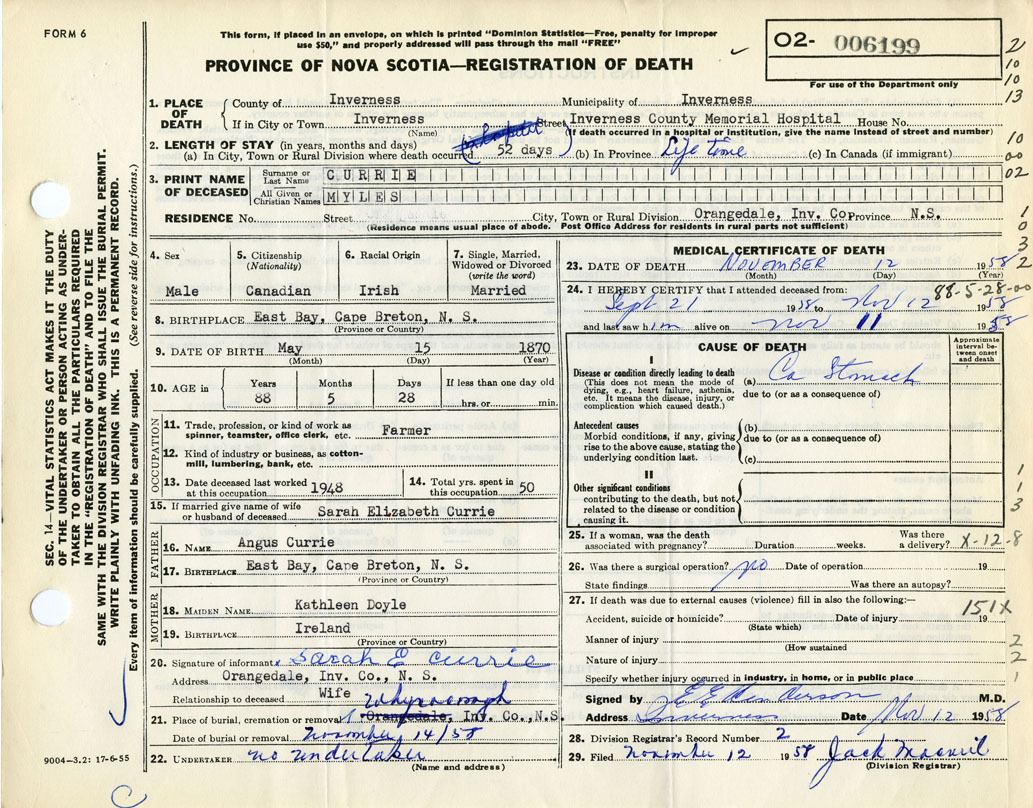 FORM 6
This form, if placed in an envelope, on which is printed "Dominion Statistics—Free, penalty for improper
use $50," and properly addressed will pass through the mail "FREE"
PROVINCE OF NOVA SCOTIA—REGISTRATION OF DEATH
02- 006199
For use of the Department only
2
10
10
13
10
00
02
1
0
3
2
1. PLACE OF DEATH
County of Inverness Municipality of Inverness
If in City or Town Inverness Street Inverness County Memorial Hospital House No.
(Name) (If death occurred in a hospital or institution, give the name instead of street and number)
2. LENGTH OF STAY (in years, months and days)
(a) In City, Town or Rural Division where death occurred (in hospital 52 days) (b) In Province Life time (c) In Canada (if immigrant)
3. PRINT NAME OF DECEASED
Surname or Last Name CURRIE
All Given or Christian Names MYLES
RESIDENCE No. Street City, Town or Rural Division Orangedale, Inv. Co. Province N.S.
(Residence means usual place of abode. Post Office Address for residents in rural parts not sufficient)
4. Sex
Male
5. Citizenship
(Nationality)
Canadian
6. Racial Origin
Irish
7. Single, Married,
Widowed or Divorced
(write the word)
Married
8. BIRTHPLACE East Bay, Cape Breton, N. S.
(Province or Country)
9. DATE OF BIRTH May 15 1870
(Month) (Day) (Year)
10. AGE in
Years Months Days If less than one day old
88 5 28 hrs. or min.
OCCUPATION
11. Trade, profession, or kind of work as
spinner, teamster, office clerk, etc. Farmer
12. Kind of industry or business, as cotton-
mill, lumbering, bank, etc.
13. Date deceased last worked
at this occupation 1948
14. Total yrs. spent in
this occupation 50
15. If married give name of wife
or husband of deceased Sarah Elizabeth Currie
FATHER
16. NAME Angus Currie
17. BIRTHPLACE East Bay, Cape Breton, N. S.
(Province or Country)
MOTHER
18. MAIDEN NAME Kathleen Doyle
19. BIRTHPLACE Ireland
(Province or Country)
20. Signature of informant x Sarah E Currie
Address Orangedale, Inv. Co., N. S.
Relationship to deceased Wife
Whycocomagh
21. Place of burial, cremation or removal Orangedale, Inv. Co., N.S.
Date of burial or removal November 14/58
22. UNDERTAKER no undertaker
(Name and address)
MEDICAL CERTIFICATE OF DEATH
23. DATE OF DEATH NOVEMBER 12 1958
(Month) (Day) (Year)
88-5-28-00
24. I HEREBY CERTIFY that I attended deceased from:
Sept 21 1958 to Nov 12 1958
and last saw him alive on Nov 11 1958
CAUSE OF DEATH
Approximate
interval be-
tween onset
and death
I
Disease or condition directly leading to death
(This does not mean the mode of
dying, e.g., heart failure, asthenia,
etc. It means the disease, injury, or
complication which caused death.)
(a) Ca Stomach
due to (or as a consequence of)
Antecedent causes
Morbid conditions, if any, giving
rise to the above cause, stating the
underlying condition last.
(b)
due to (or as a consequence of)
(c)
II
Other significant conditions
contributing to the death, but not
related to the disease or condition
causing it.
1
1
3
25. If a woman, was the death
associated with pregnancy? Duration weeks.
Was there
a delivery? X-12-8
26. Was there a surgical operation? no Date of operation 19
State findings Was there an autopsy?
27. If death was due to external causes (violence) fill in also the following:—
151X
Accident, suicide or homicide? Date of injury 19
(State which)
Manner of injury
(How sustained
2
Nature of injury
2
Specify whether injury occurred in industry, in home, or in public place
1
Signed by M.D.
Address Inverness Date Nov 12 1958
28. Division Registrar's Record Number 2
29. Filed November 12 1958 Jack
(Division Registrar)
SEC. 14—VITAL STATISTICS ACT MAKES IT THE DUTY
OF THE UNDERTAKER OR PERSON ACTING AS UNDER-
TAKER TO OBTAIN ALL THE PARTICULARS REQUIRED
IN THE "REGISTRATION OF DEATH" AND TO FILE THE
SAME WITH THE DIVISION REGISTRAR WHO SHALL ISSUE THE BURIAL PERMIT.
WRITE PLAINLY WITH UNFADING INK. THIS IS A PERMANENT RECORD.
Every item of information should be carefully supplied. (See reverse side for instructions.)
9004—3.2: 17-6-55